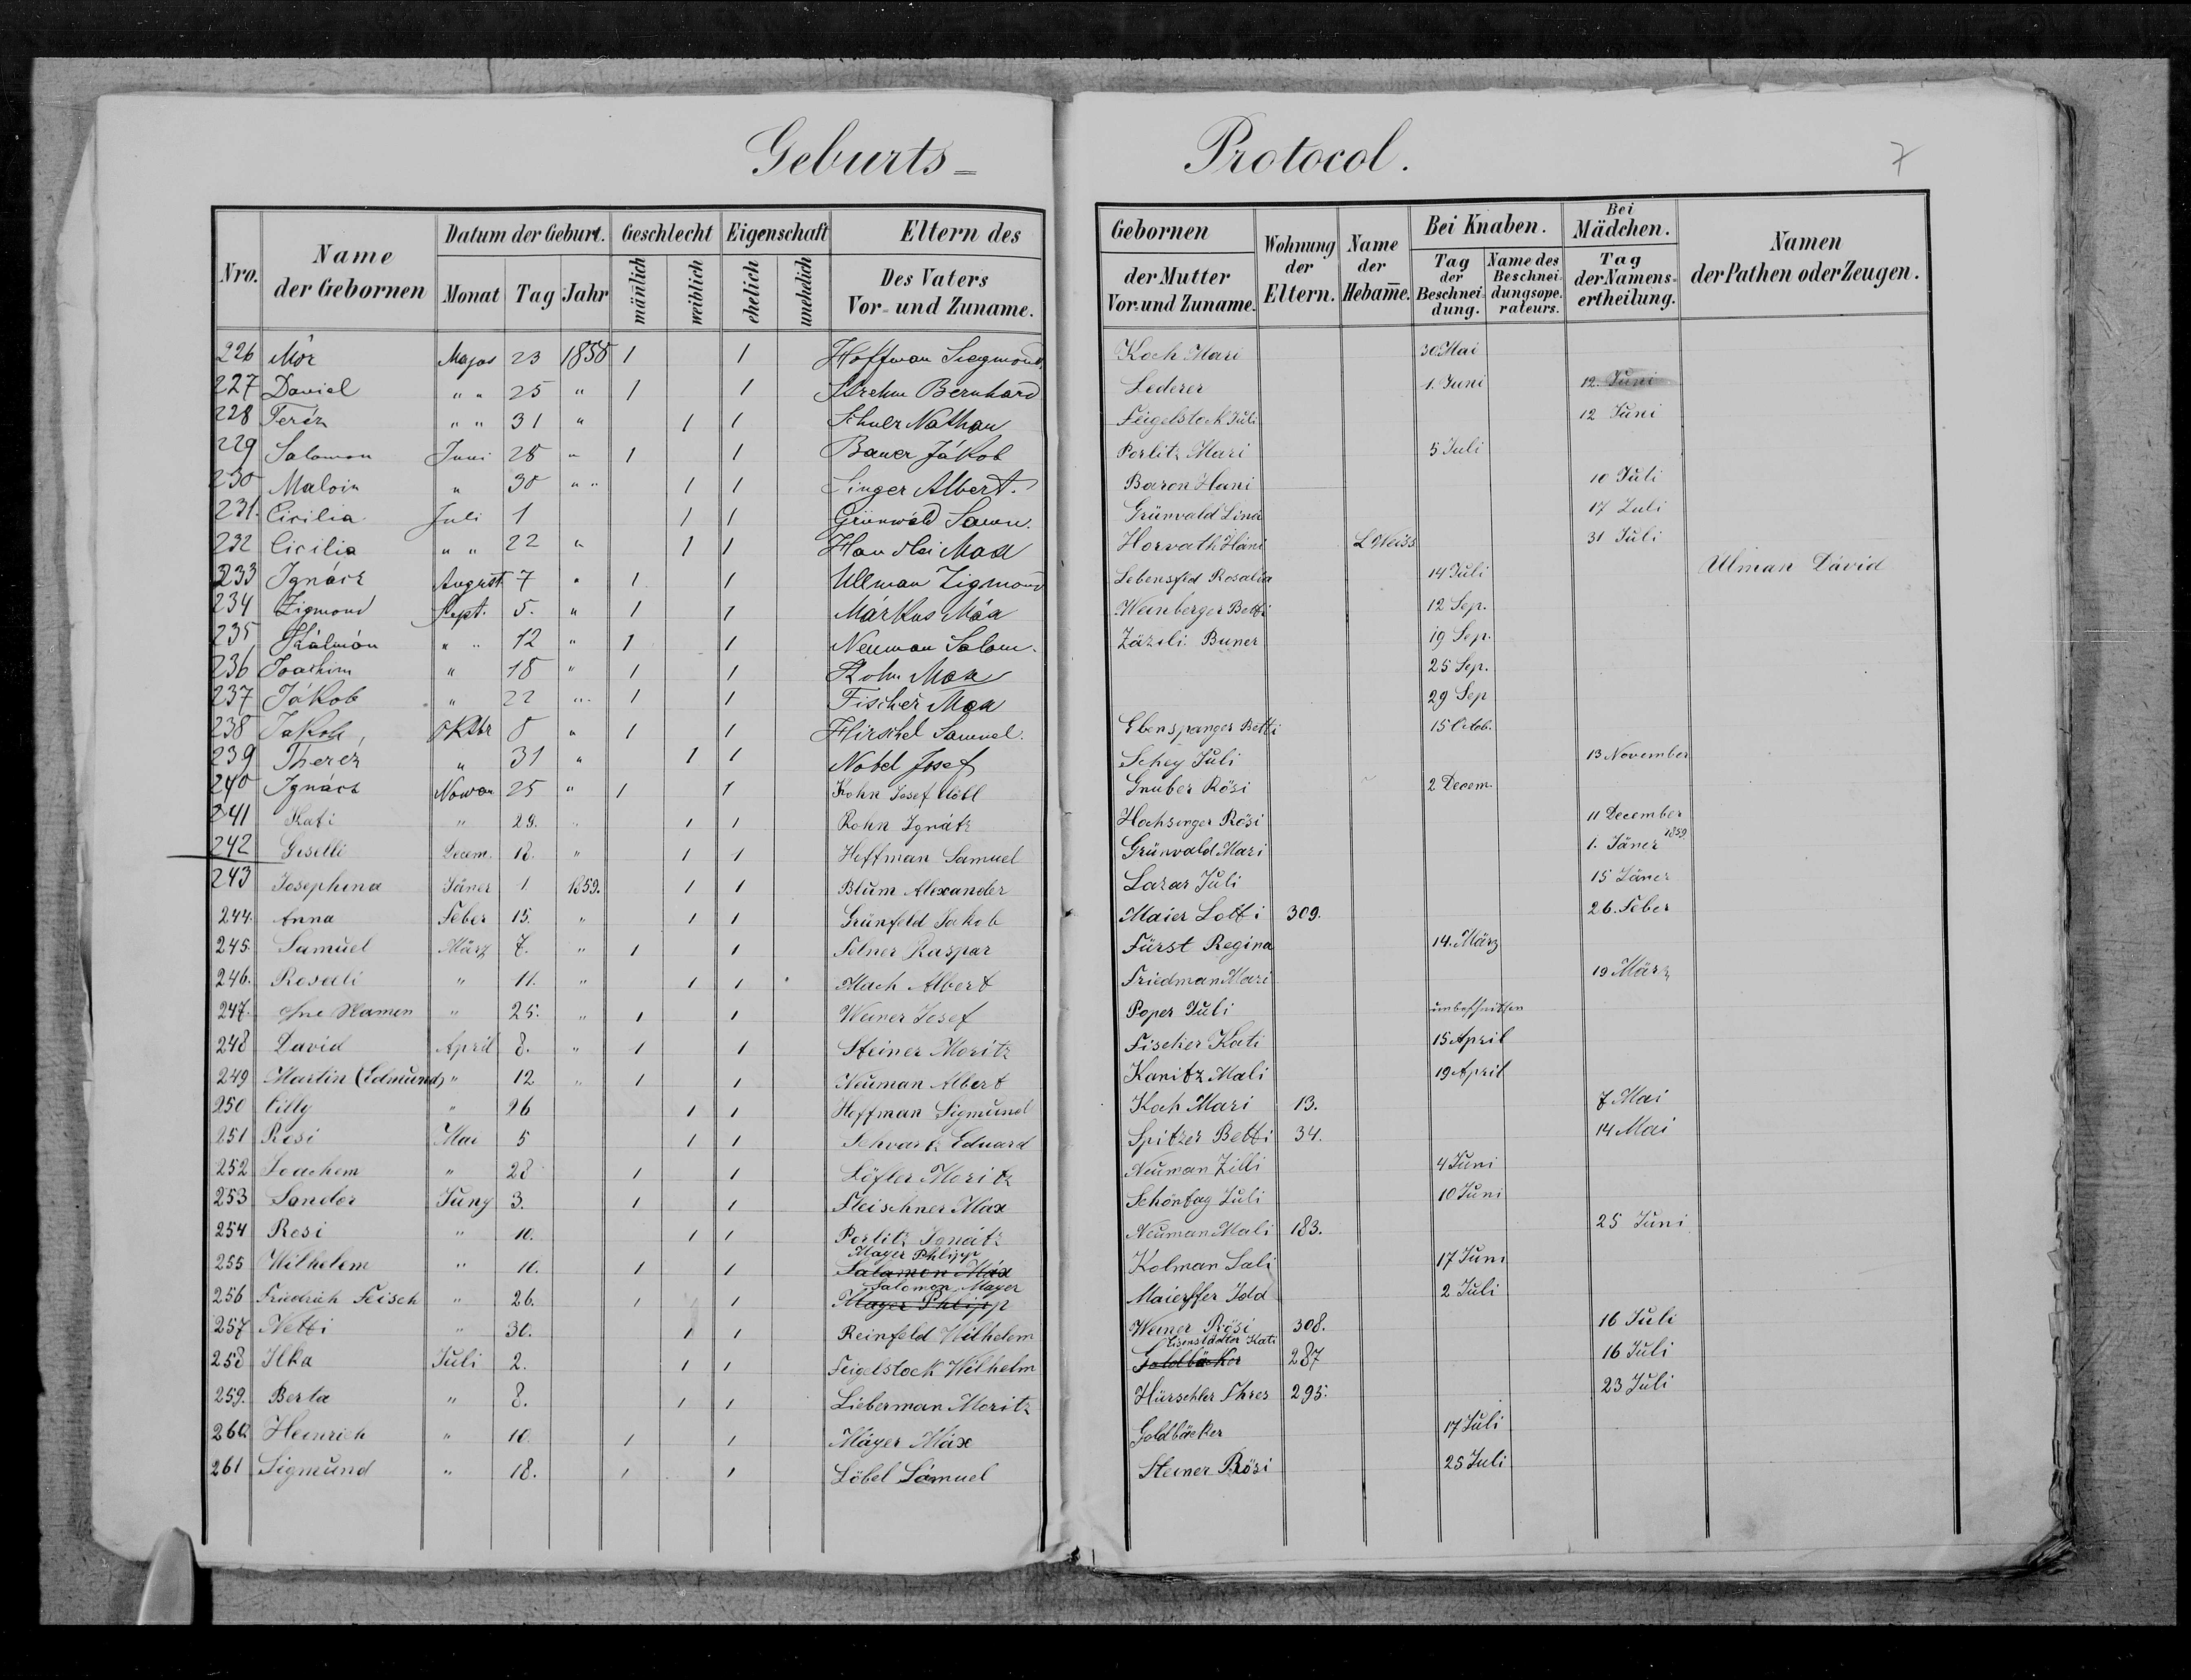 Geburts- Protocol.
7
Nro. Name der Gebornen Datum der Geburt. Geschlecht Eigenschaft Eltern des Gebornen Wohnung der Eltern. Name der Hebam̅e. Bei Knaben. Bei Mädchen. Namen der Pathen oder Zeugen.
Monat Tag Jahr män̅lich weiblich ehelich unehelich Des Vaters Vor- und Zuname. der Mutter Vor- und Zuname. Tag der Beschneidung. Name des Beschneidungsoperateurs. Tag der Namensertheilung.
226 Mór Majus 23 1858 1 1 Hoffman Siegmond Koch Mari 30 Mai
227 Daniel " " 25 " 1 1 Bernhard Lederer 1. Juni 12. Juni
228 Teréz " " 31 " 1 1 Nathan Feigelstock Juli 12 Juni
229 Salamon Juni 28 " 1 1 Bauer Jákob Porlitz Mari 5 Juli
230 Malvin " 30 " " 1 1 Singer Albert. Baron Hani 10 Juli
231. Cicilia Juli 1 1 1 Grünwald Sam. Grünvald Lina 17 Juli
232 Cicilia " " 22 " 1 1 Max Horvath Háni L Weiss 31 Juli
233 Ignácz August 7 " 1 1 Ullman Zigmond Lebensfed Rosalia 14 Juli Ulman Dávid
234 Zigmond Sept. 5. " 1 1 Márkus Máx Weinberger Betti 12 Sep.
235 Kálmán " " 12 " 1 1 Neuman Salom. Zäzili Buner 19 Sep.
236 Joachim " 18 " 1 1 Kohn Max 25 Sep.
237 Jákob " 22 " 1 1 Fischer Max 29 Sep
238 Jakob Oktbr 8 " 1 1 Hirschel Samuel. Ebenspanger Betti 15 Octob.
239 Therez " 31 " 1 1 Nobel Josef Schey Juli 13 November
240 Ignácz Novem 25 " 1 1 Kohn Josef Löbl Gruber Rösi 2 Decem.
241 Kati " 29. " 1 1 Kohn Ignátz Hochsinger Rösi 11 December
242 Gisilli Decem. 18. " 1 1 Hoffman Samuel Grünvald Mari 1. Jäner 1859
243 Josephina Jäner 1 1859. 1 1 Blum Alexander Lazar Juli 15 Jäner
244. Anna Feber 15. " 1 1 Grünfeld Jakob Maier Lotti 309. 26. Feber
245. Samuel März 7. " 1 1 Felner Kaspar Fürst Regina 14. März
246. Rosali " 11. " 1 1 Mach Albert Friedman Mari 19 März
247. ohne Namen " 25. " 1 1 Weiner Josef Poper Juli unbeschnitten
248 David April 8. " 1 1 Steiner Moritz Fischer Kati 15 April
249 Martin (Edmund) " 12 " 1 1 Neuman Albert Kanitz Mali 19 April
250 Cilly " 26 1 1 Hoffman Sigmund Koch Mari 13. 7 Mai
251 Rosi Mai 5 1 1 Schvartz Eduard Spitzer Betti 34. 14 Mai
252 Joachem " 28 1 1 Löfler Moritz Neuman Zilli 4 Juni
253 Sandor Juny 3. 1 1 Fleischner Max Schöntag Juli 10 Juni
254 Rosi " 10. 1 1 Porlitz Ignátz Neuman Mali 183. 25 Juni
Mayer Phlipp
255 Wilhelem " 10. 1 1 Salamon Máx Kolman Sali 17 Juni
Salomon Mayer
256 Friedrich Feisch " 26. 1 1 Mayer Phlipp Ida 2 Juli
257 Netti " 30. 1 1 Reinfeld Wilhelem Weiner Rösi 308. 16 Juli
Eisenstädter Kati
258 Ilka Juli 2. 1 1 Feigelstock Wilhelm Goldbäcker 287 16 Juli
259. Berta " 8. 1 1 Lieberman Moritz Hürschler Thres 295. 23 Juli
260. Heinrich " 10. 1 1 Máyer Máx Goldbäcker 17 Juli
261 Sigmund " 18. 1 1 Löbel Sámuel Steiner Rösi 25 Juli